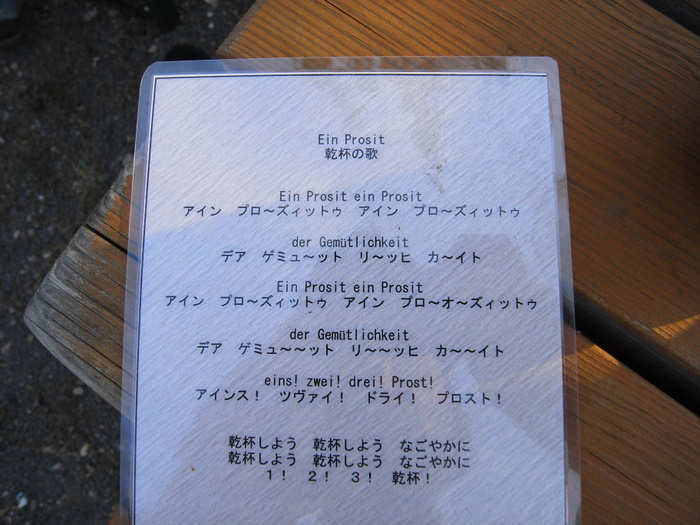 Ein Prosit
乾杯の歌
Ein Prosit ein Prosit
アイン　プロ～ズィットゥ　アイン　プロ～ズィットゥ
der Gemütlichkeit
デア　ゲミュ～ット　リ～ッヒ　カ～イト
Ein Prosit ein Prosit
アイン　プロ～ズィットゥ　アイン　プロ～オ～ズィットゥ
der Gemütlichkeit
デア　ゲミュ～～ット　リ～～ッヒ　カ～～イト
eins! zwei! drei! Prost!
アインス！　ツヴァイ！　ドライ！　プロスト！
乾杯しよう　乾杯しよう　なごやかに
乾杯しよう　乾杯しよう　なごやかに
１！　２！　３！　乾杯！